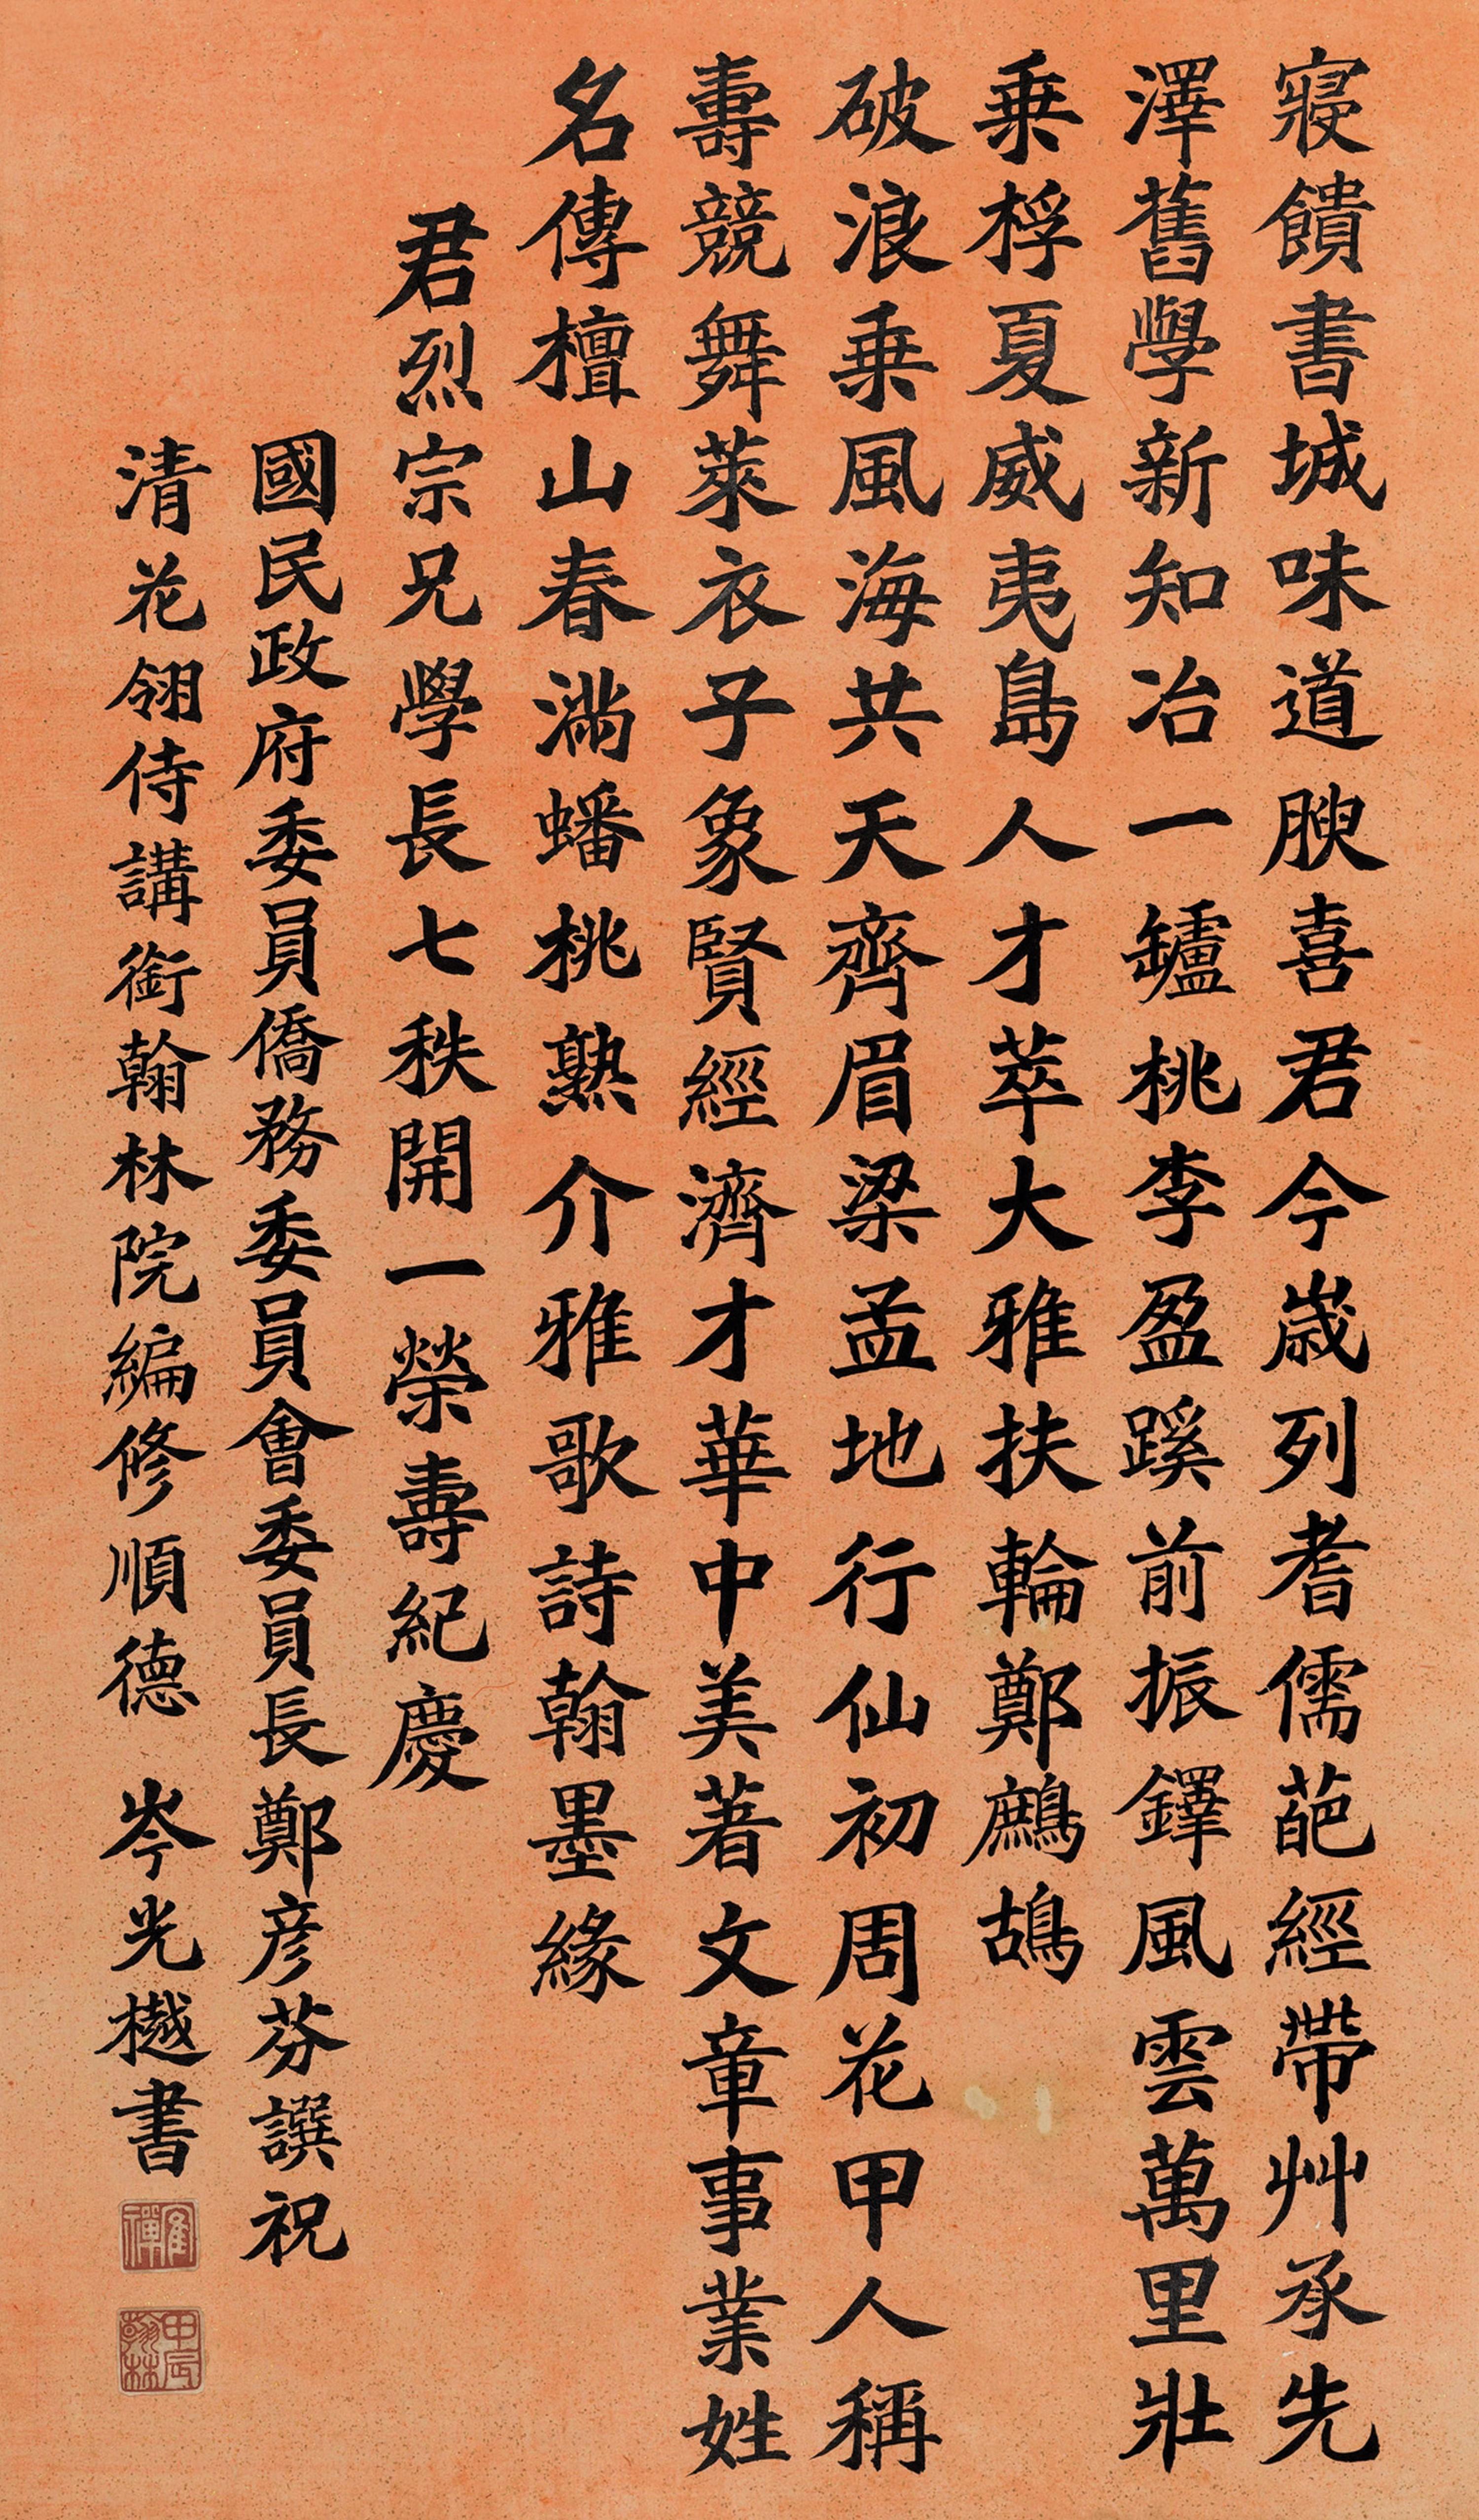 寢饋書城味道腴喜君今歲列耆儒葩經帶艸承先
澤舊學新知冶一鑪桃李盈蹊前振鐸風雲萬里壯
乗桴夏威夷島人才萃大雅扶輪鄭鷓鴣
破浪乗風海共天齊眉梁孟地行仙初周花甲人稱
壽競舞萊衣子象賢經濟才華中美著文章事業姓
名傳檀山春滿蟠桃熟介雅歌詩翰墨緣
君烈宗兄學長七秩開一榮壽紀慶
國民政府委員僑務委員會委員長鄭彦芬譔祝
清花翎侍講銜翰林院編修順德 岑光樾書
鶴禪
甲辰翰林